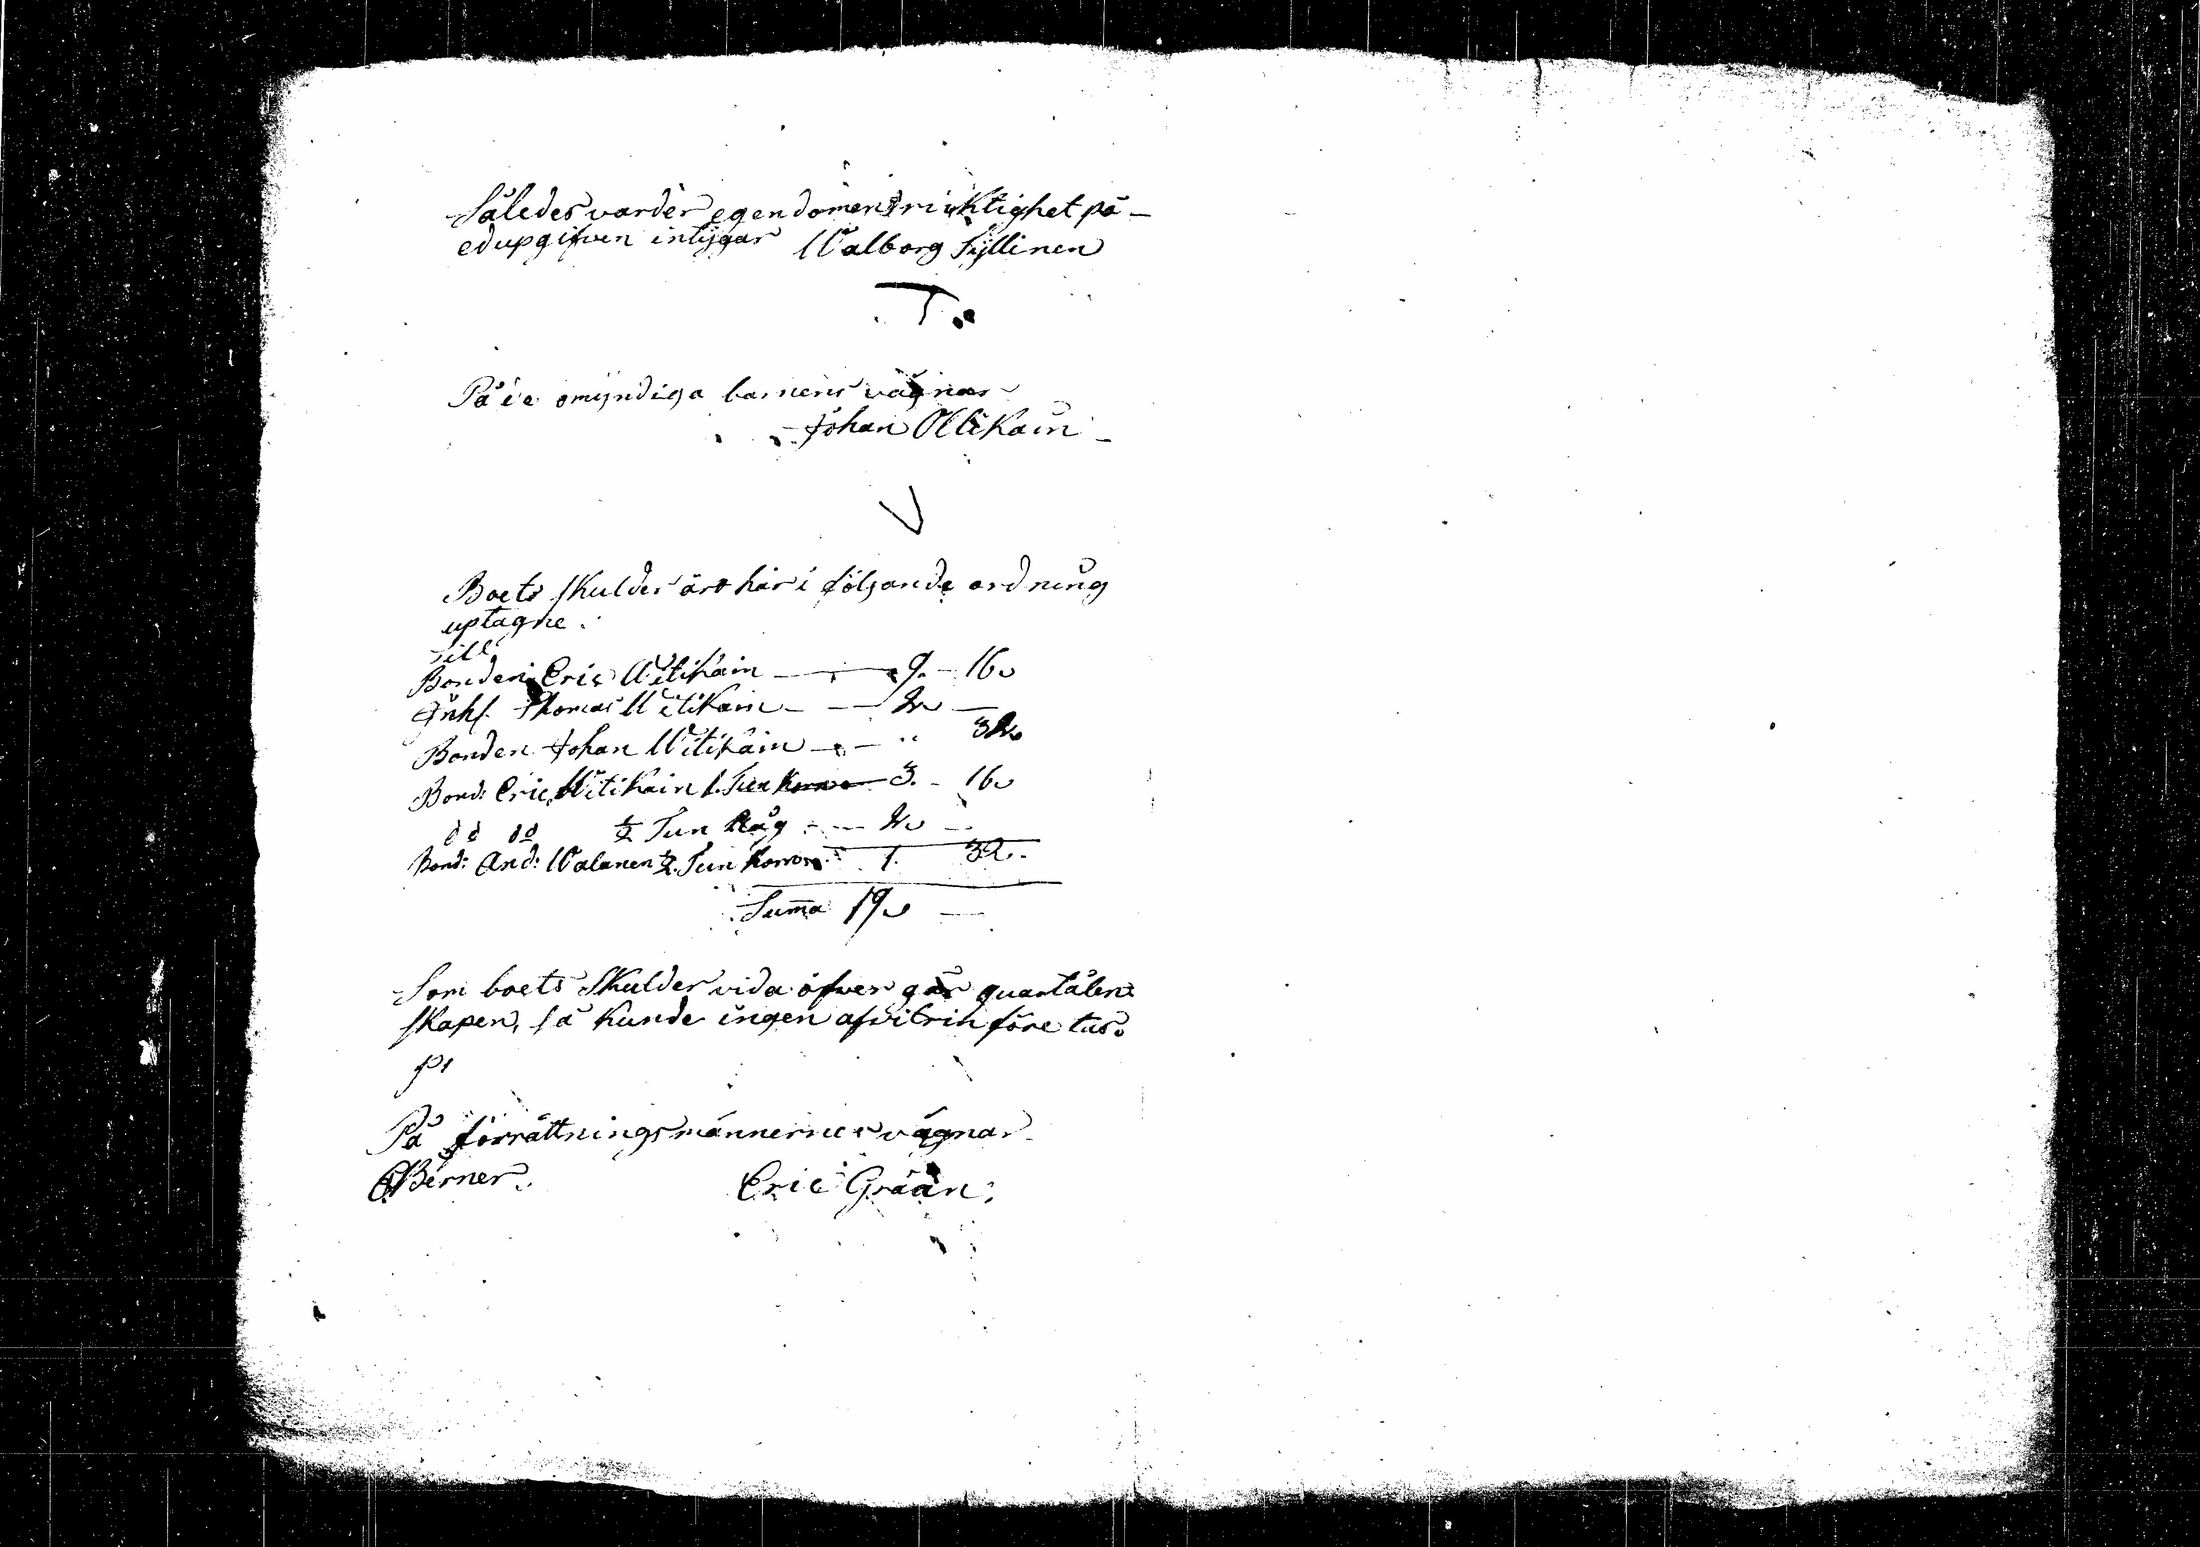 Således varder egendomens ricktighet på
ed upgifven intÿgar Walborg Tÿllinen
T
På de omÿndiga barnens vägnar
Johan Ollikain
V
Boets skulder äro här i följande ordning
uptagne.
till
Bonden Eric Witikain — 9. — 16.
Inhs. Thomas Witikain — 2. —
Bonden Johan Witikain — " 32.
Bond: Eric Witikain 1. Tun Korn 3. — 16.
dd do ½ Tun Råg — 2. —
Bond: And: Walanen ½. Tun Korn 1. 32.
Summa 19. —
Som boets Skulder vida öfver går quarlåten-
skapen, så kunde ingen afvitrin före tas.
På förrättningsmännernes vägnar
Berner. Eric Grään.